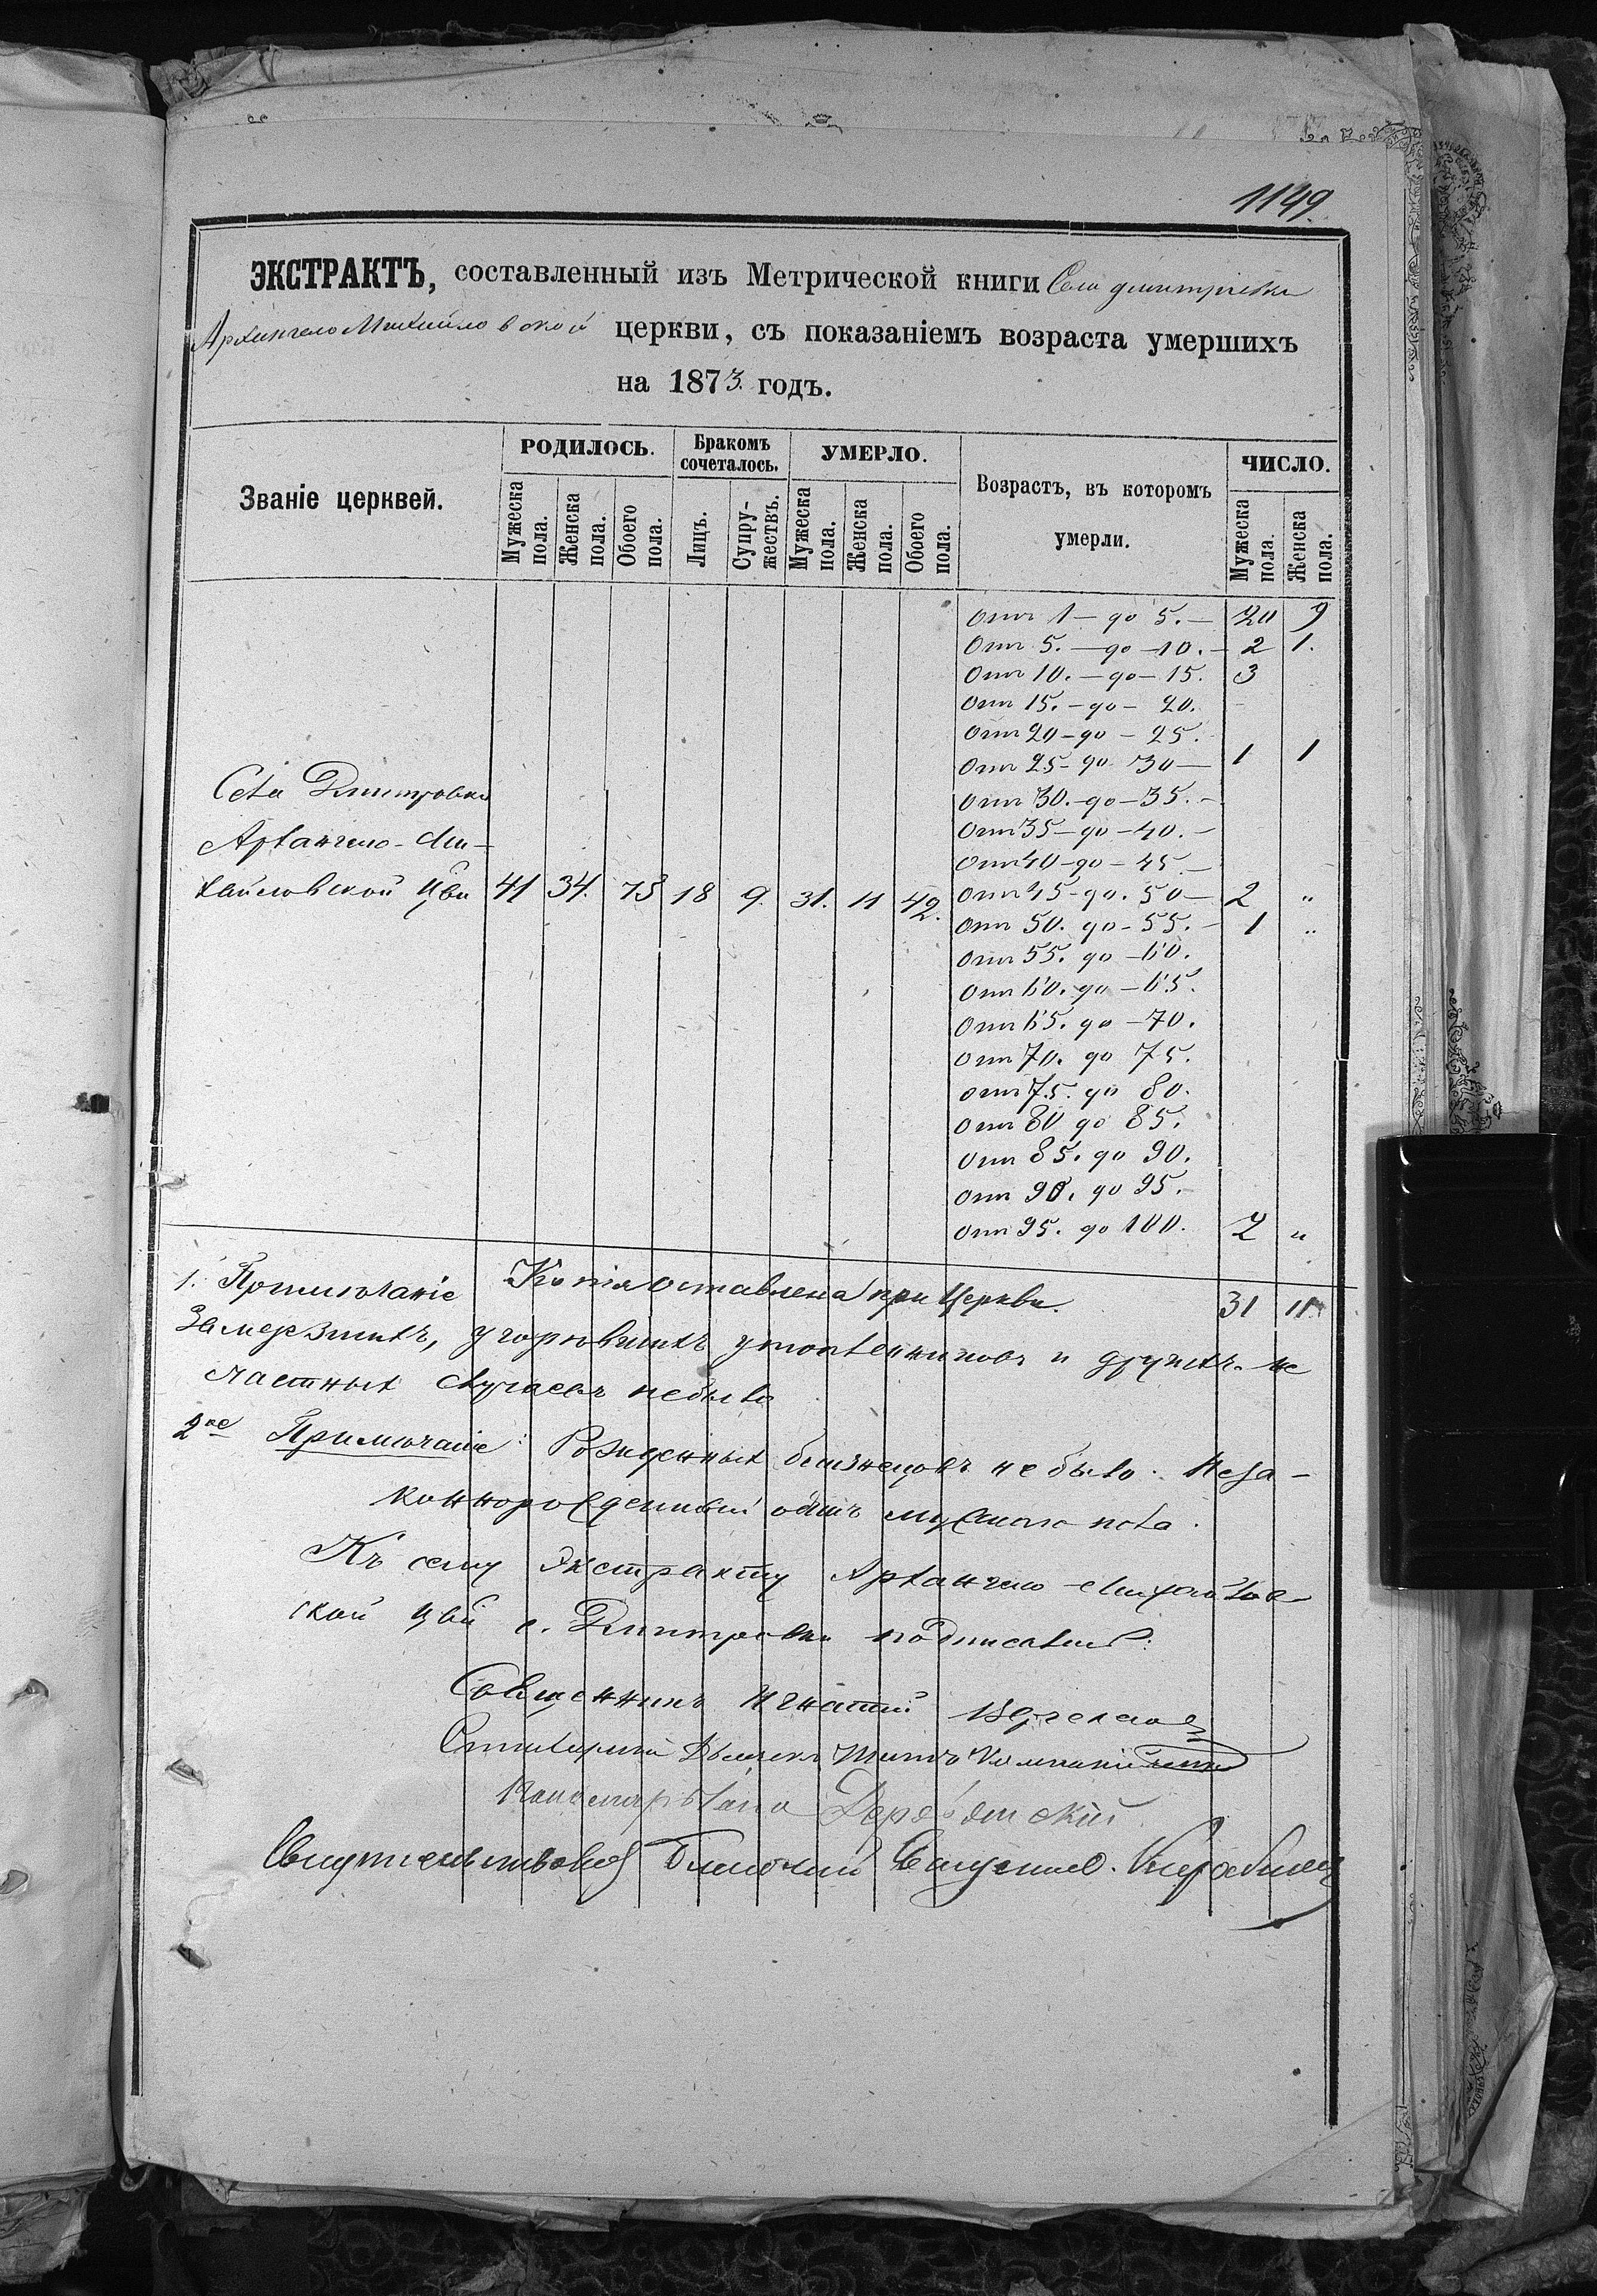 1149.
ЭКСТРАКТЪ, составленный изъ Метрической книги Села Димитріевки
Архангело Михайловской церкви, съ показаніемъ возраста умершихъ
на 1873. годъ.
Званіе церквей.
РОДИЛОСЬ.
Мужеска пола.
Женска пола.
Обоего пола.
Бракомъ сочеталось.
Лицъ.
Супружествъ.
УМЕРЛО.
Мужеска пола.
Женска пола.
Обоего пола.
Возрастъ, въ которомъ
умерли.
ЧИСЛО.
Мужеска пола.
Женска пола.
отъ 1 — до 5. — 20 9
отъ 5. — до — 10. — 2 1.
отъ 10. — до — 15. 3
отъ 15. — до — 20.
отъ 20 — до — 25.
отъ 25 — до 30 — 1 1
отъ 30. — до — 35. —
отъ 35 — до — 40. —
отъ 40 — до — 45. —
Села Дмитровки
Архангело-Ми-
хайловской Цви 41 34. 75 18 9. 31. 11 42.
отъ 45 — до. 50 — 2 „
отъ 50. до — 55. — 1 „
отъ 55. до — 60.
отъ 60. до — 65.
отъ 65. до — 70.
отъ 70. до 75.
отъ 75. до 80.
отъ 80 до 85.
отъ 85. до 90.
отъ 90. до 95.
отъ 95. до 100. 2 „
31 11
1. Примѣчаніе Копія оставлена при Церкви.
Замерзшихъ, угорѣвшихъ утопленниковъ и другихъ не
счастныхъ случаевъ небыло
2ое Примѣчаніе: Рожденныхъ близнецовъ не было. Неза-
коннорожденный одинъ мужскаго пола.
Къ сему Экстракту Архангело-Михайлов
ской Цви с. Дмитровки подписались:
Священникъ Игнатій
Дьячекъ
Пономарь
Благочинный Священникъ